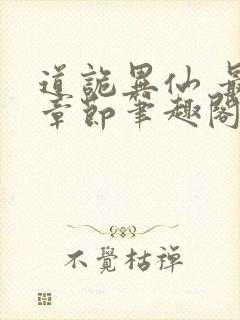 道詭異仙 最
章節筆趣閣
不覺枯禪